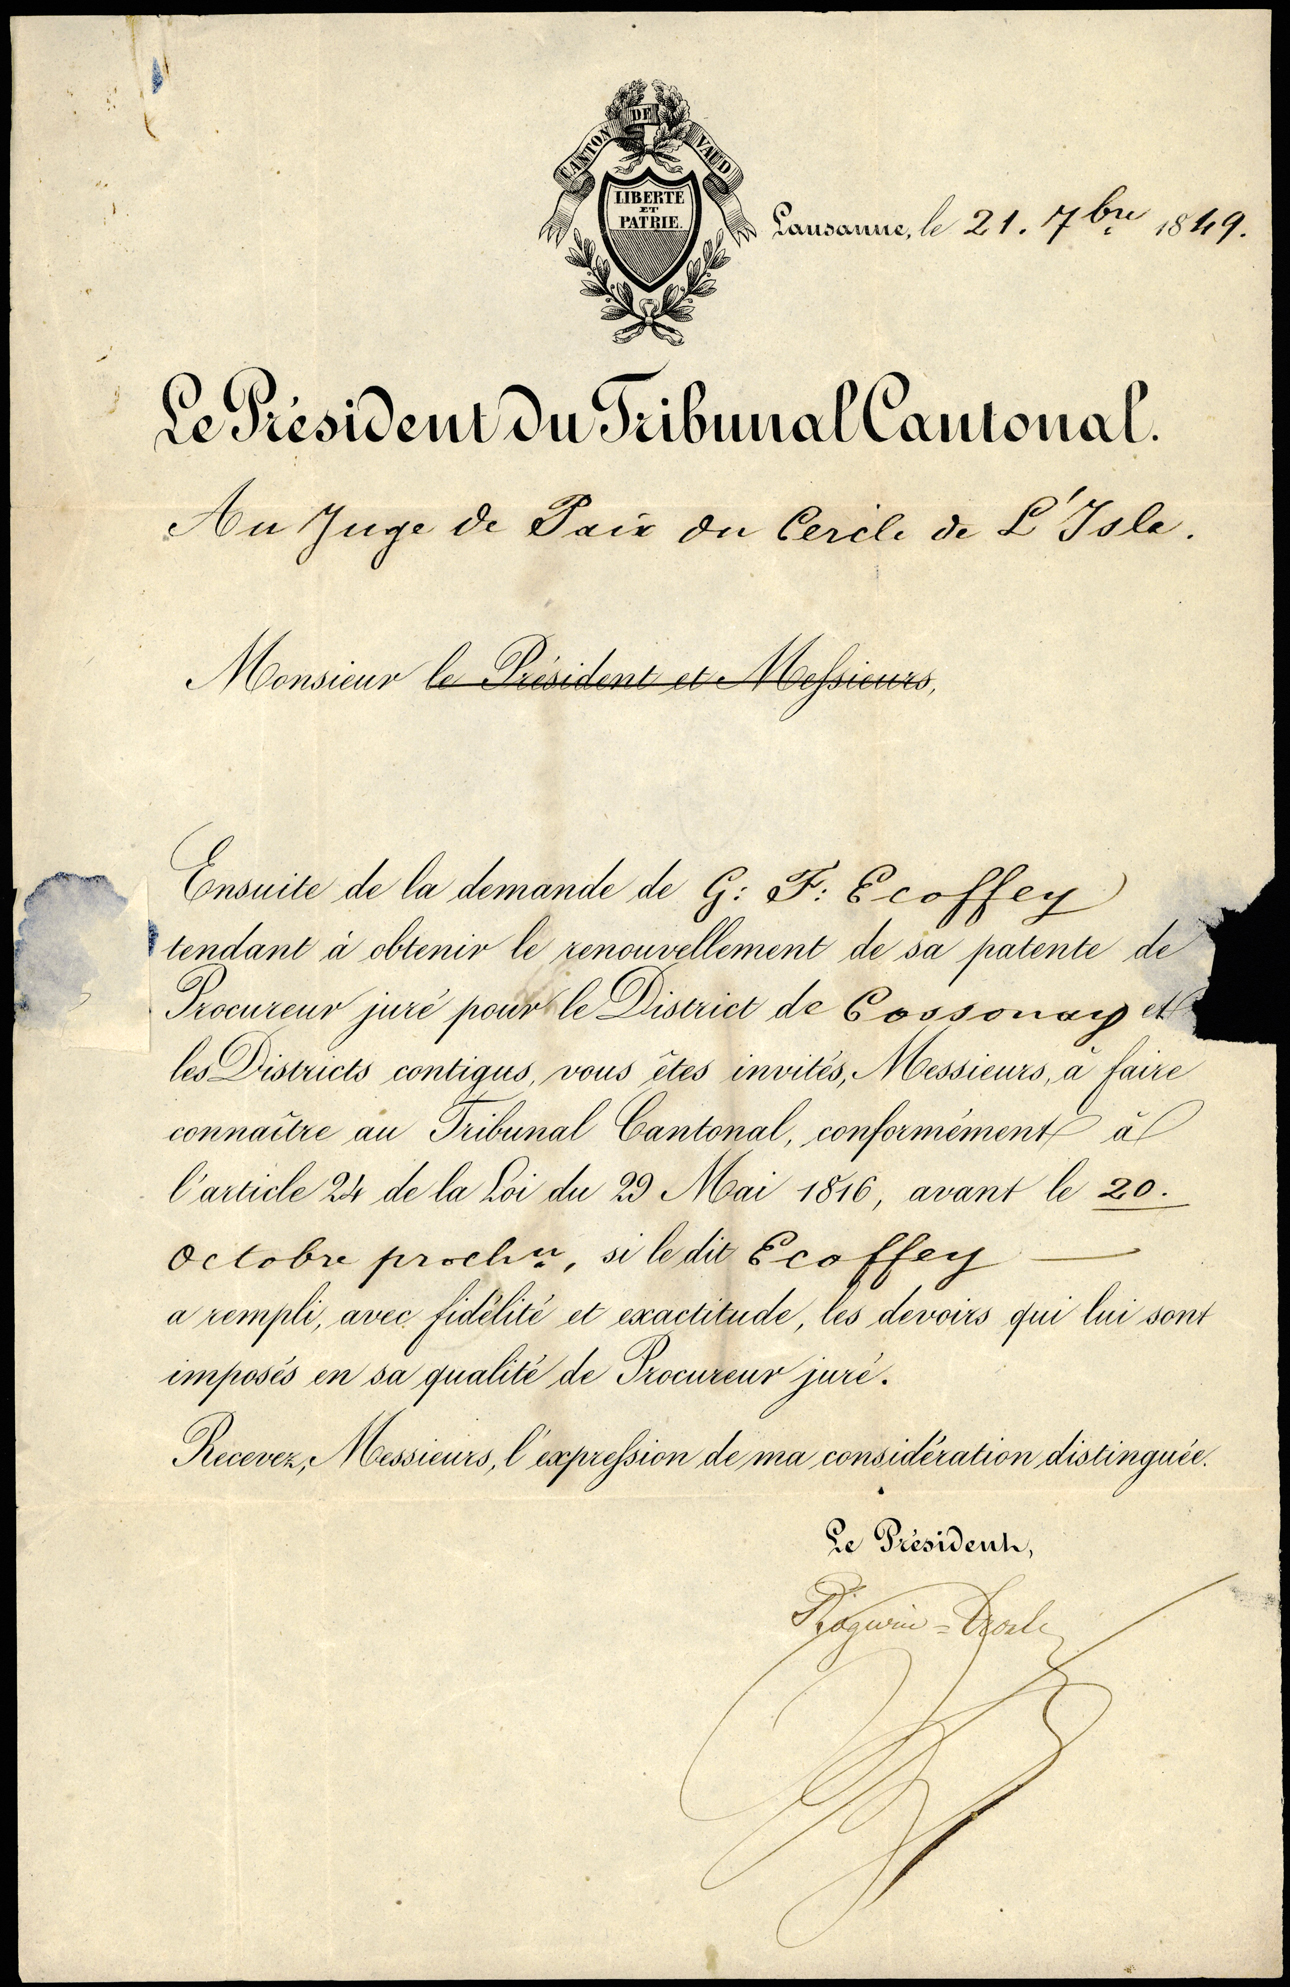 CANTON DE VAUD
LIBERTÉ
ET
PATRIE.
Lausanne, le 21. 7bre 1849.
Le Président du Tribunal Cantonal.
Au Juge de Paix du Cercle de L'Isle.
Monsieur le Président et Messieurs,
Ensuite de la demande de G: F: Ecoffey
tendant à obtenir le renouvellement de sa patente de
Procureur juré pour le District de Cossonay et
les Districts contigus, vous êtes invités, Messieurs, à faire
connaître au Tribunal Cantonal, conformément à
l'article 24 de la Loi du 29 Mai 1816, avant le 20.
Octobre prochn, si le dit Ecoffey
a rempli, avec fidélité et exactitude, les devoirs qui lui sont
imposés en sa qualité de Procureur juré.
Recevez, Messieurs, l'expression de ma considération distinguée.
Le Président,